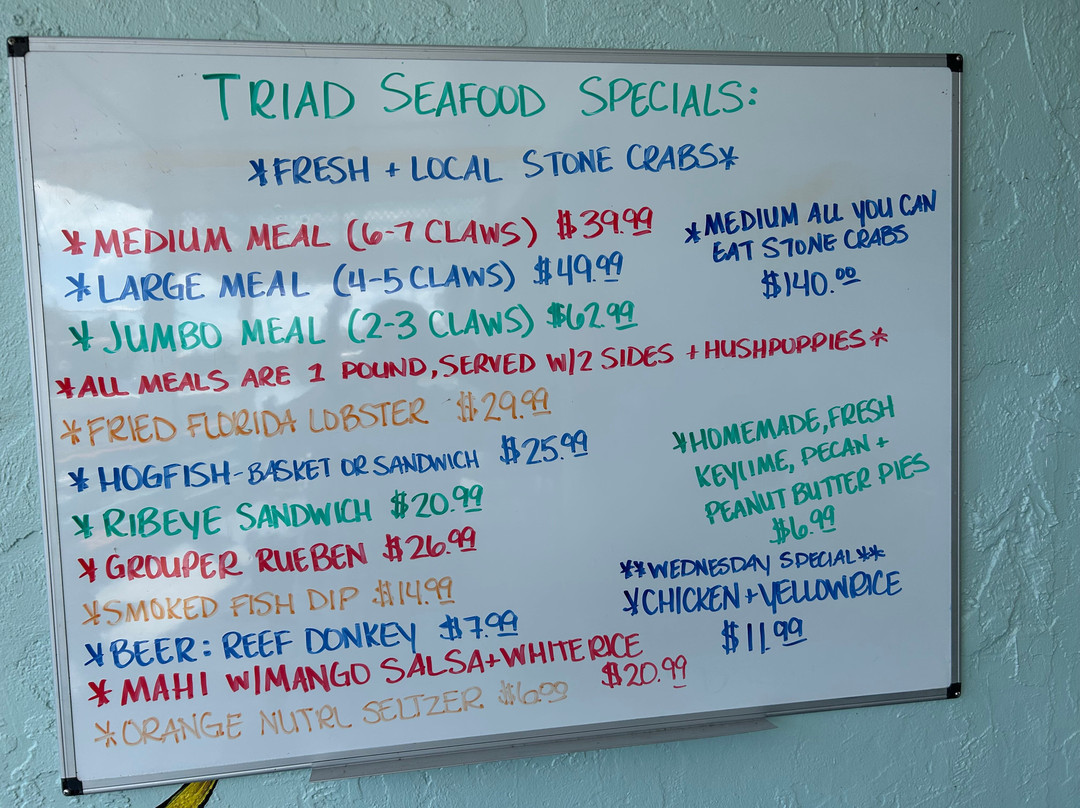 TRIAD SEAFOOD SPECIALS:
*FRESH + LOCAL STONE CRABS*
*MEDIUM MEAL (6-7 CLAWS) $39.99
*LARGE MEAL (4-5 CLAWS) $49.99
*JUMBO MEAL (2-3 CLAWS) $62.99
*MEDIUM ALL YOU CAN
EAT STONE CRABS
$140.00
*ALL MEALS ARE 1 POUND, SERVED W/2 SIDES + HUSHPUPPIES*
*FRIED FLORIDA LOBSTER $29.99
*HOGFISH-BASKET OR SANDWICH $25.99
*RIBEYE SANDWICH $20.99
*GROUPER RUEBEN $26.99
*SMOKED FISH DIP $14.99
*BEER: REEF DONKEY $7.99
*MAHI W/MANGO SALSA+WHITE RICE
$20.99
*ORANGE NUTRL SELTZER $6.99
*HOMEMADE, FRESH
KEYLIME, PECAN +
PEANUT BUTTER PIES
$6.99
**WEDNESDAY SPECIAL**
*CHICKEN + YELLOW RICE
$11.99